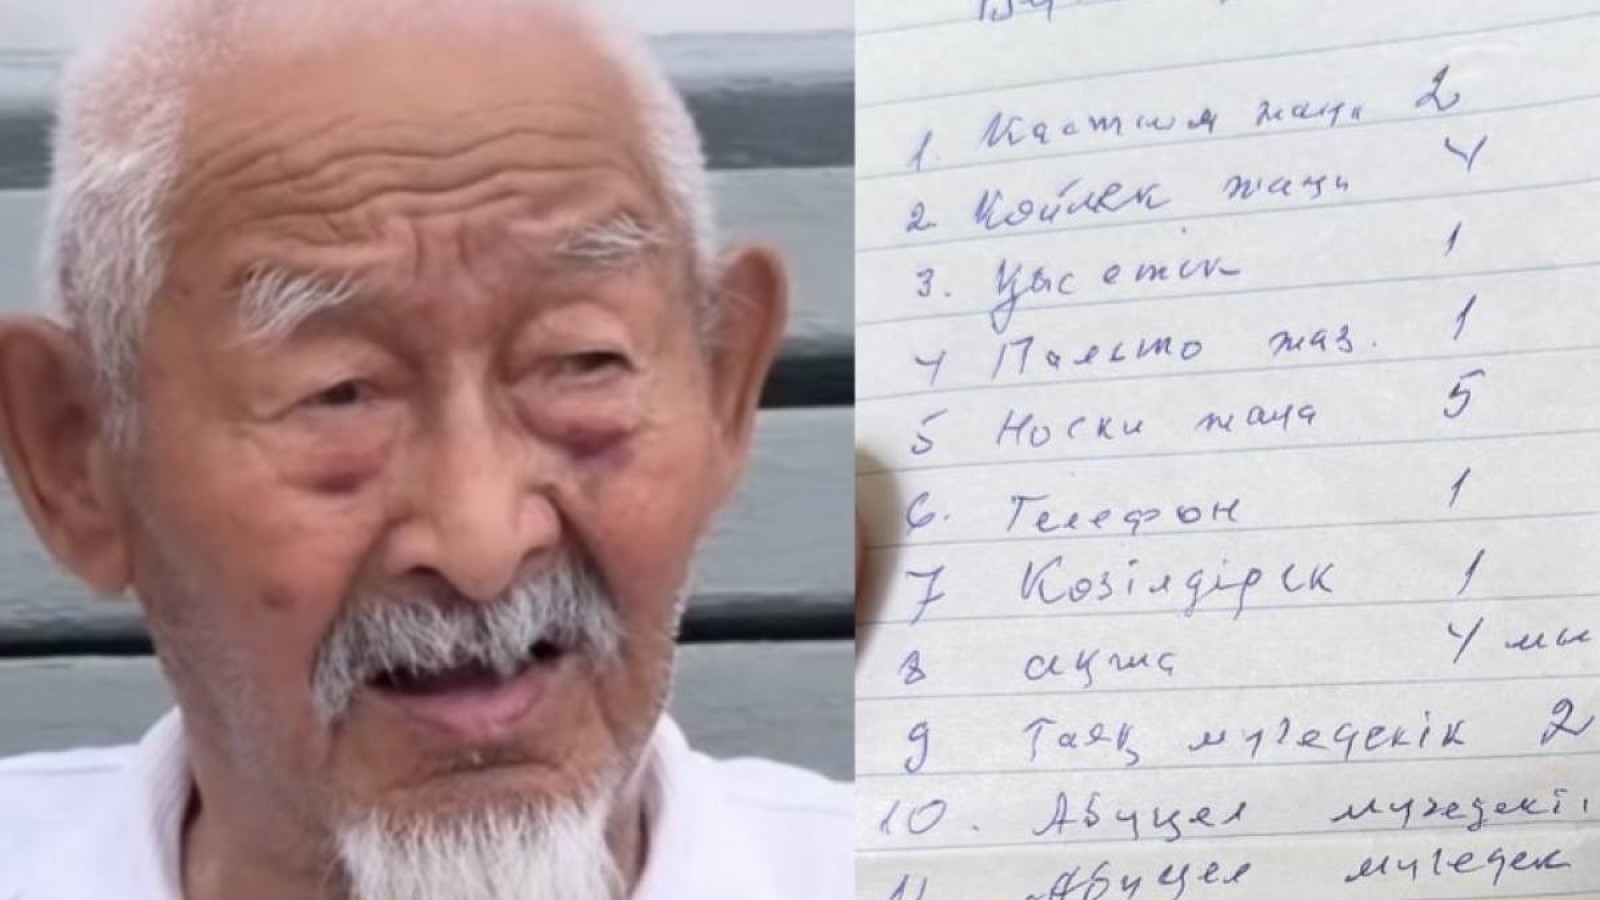 1. Кастюм жаңа 2
2 Көйлек жаңа 4
3. Қыс етік 1
4 Пальто жаз. 1
5 Носки жаңа 5
6. Телефон 1
7 Көзілдірік 1
8 ақша 4 мы
9 Таяқ мүгедекік 2
10. Абуцел мүгедекі
11 Абуцел мүгедек